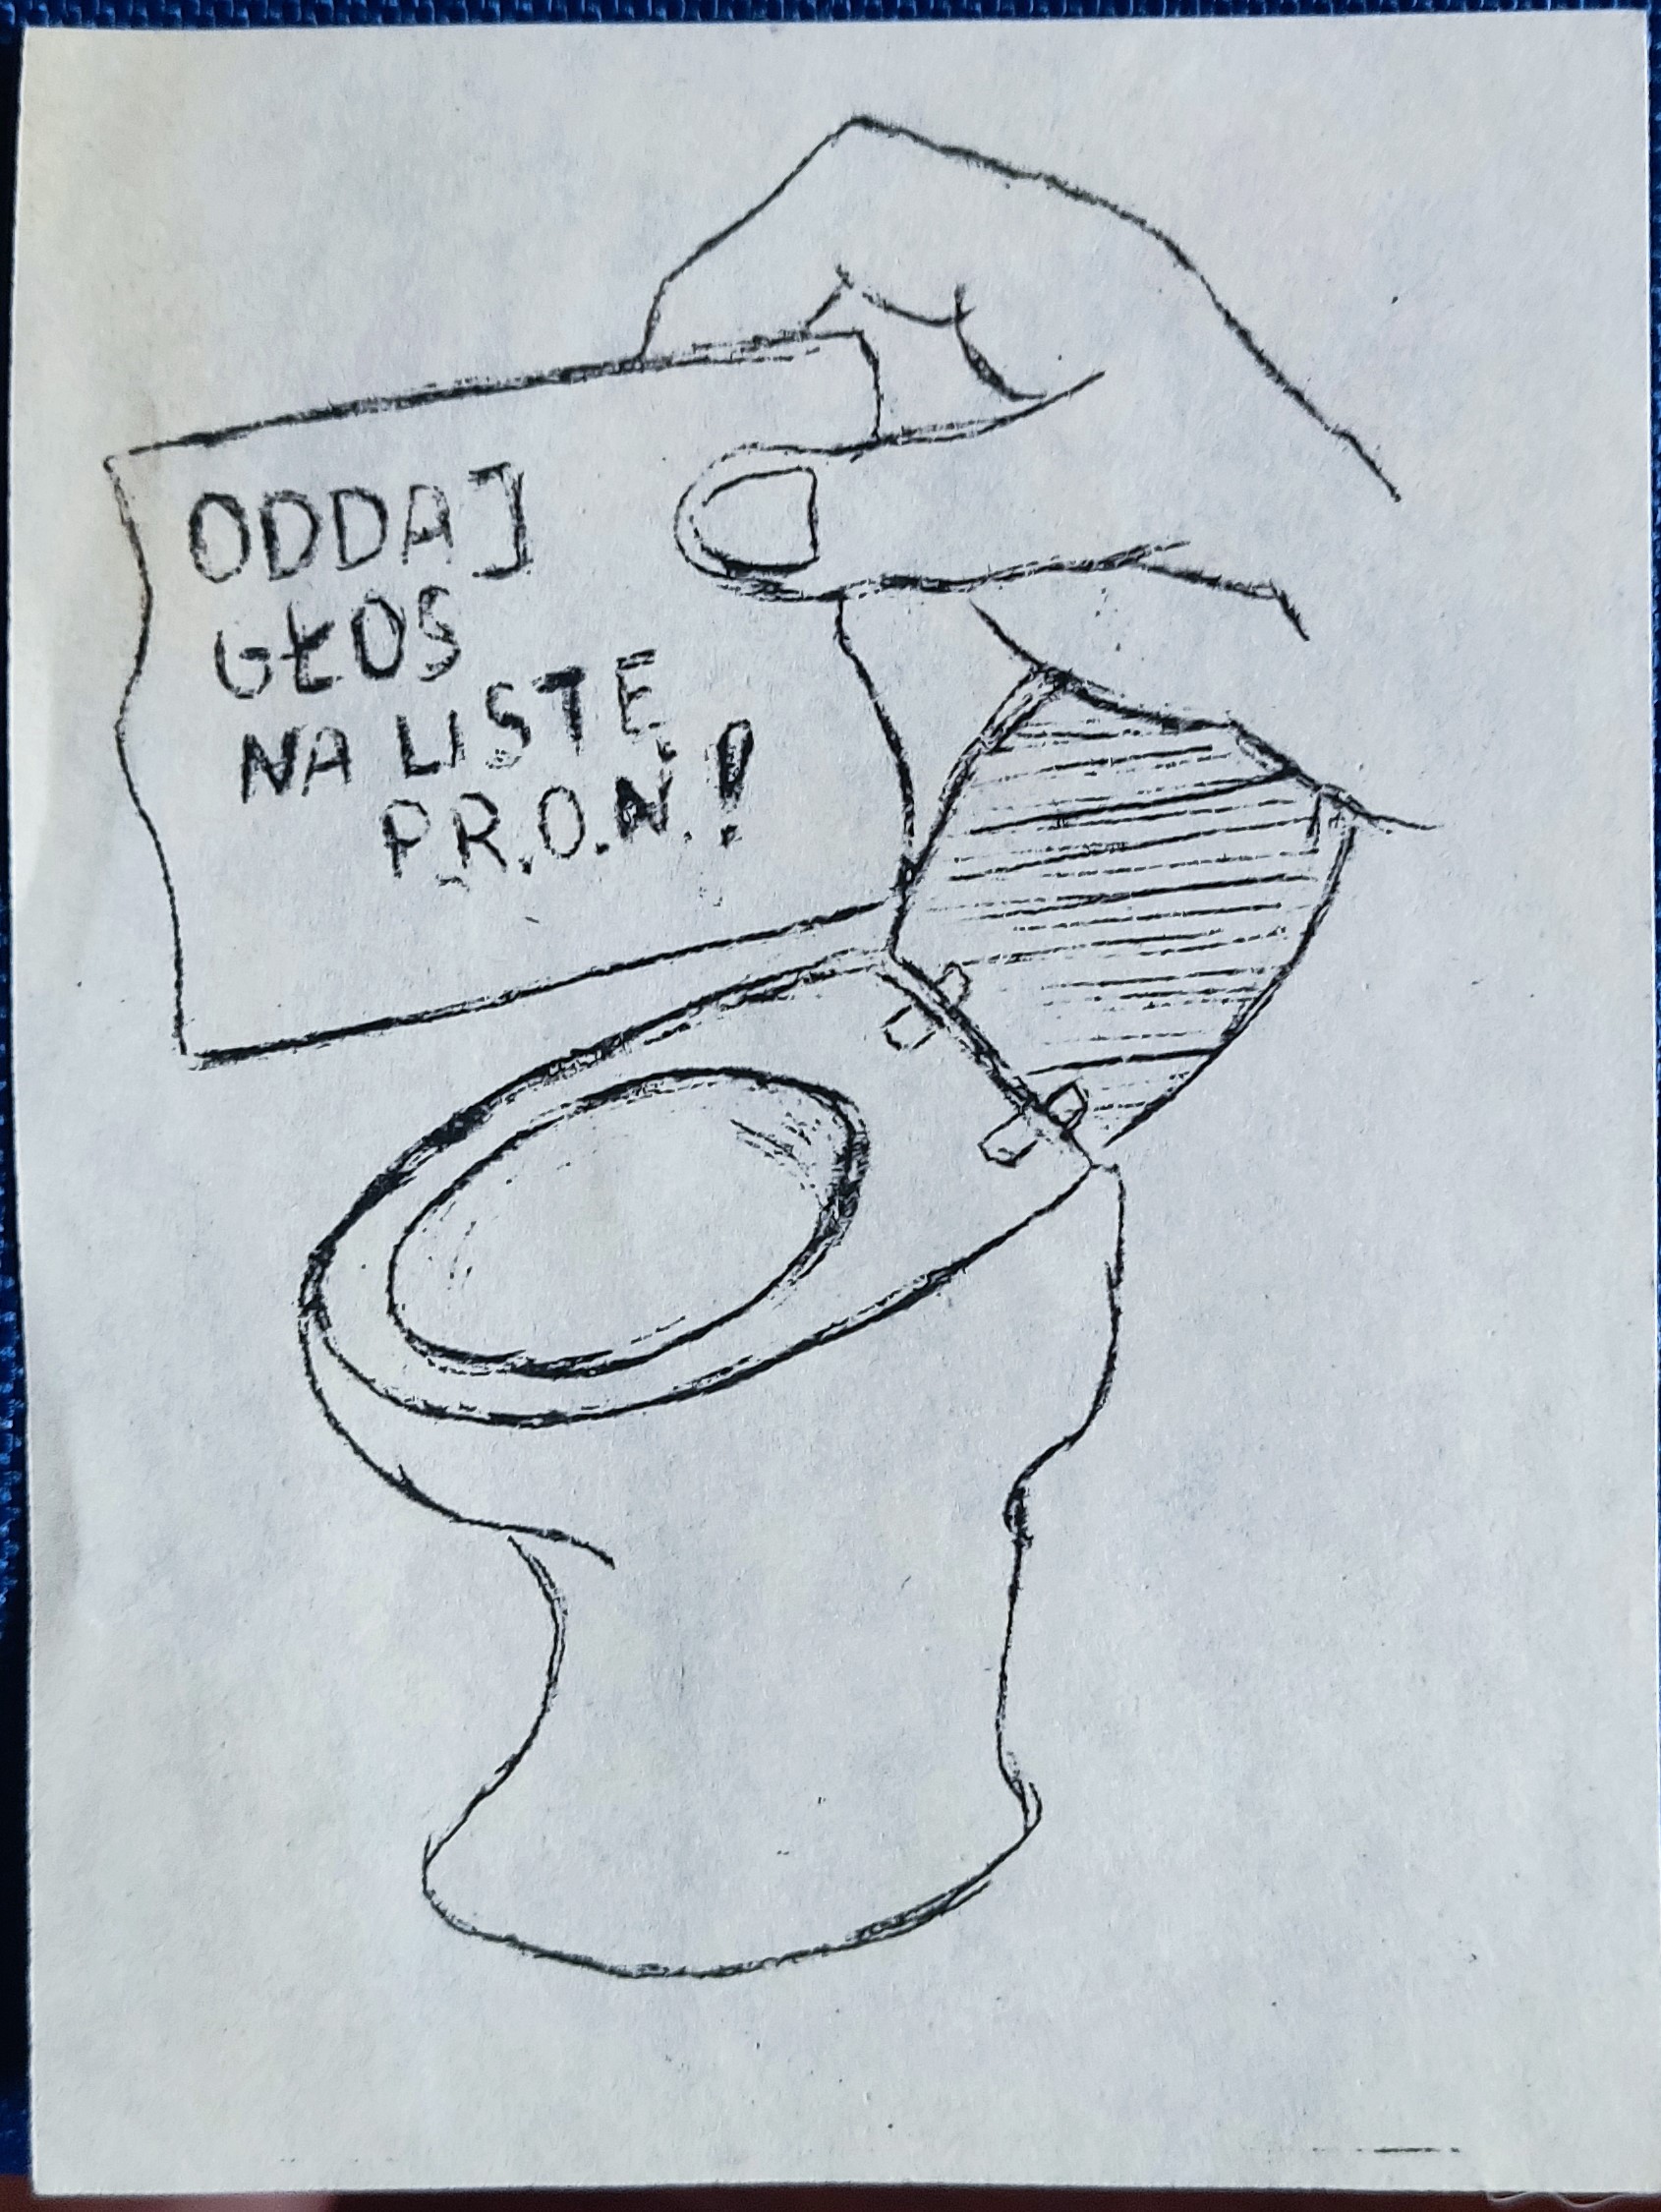 ODDAJ
GŁOS
NA LISTĘ
P.R.O.N.!